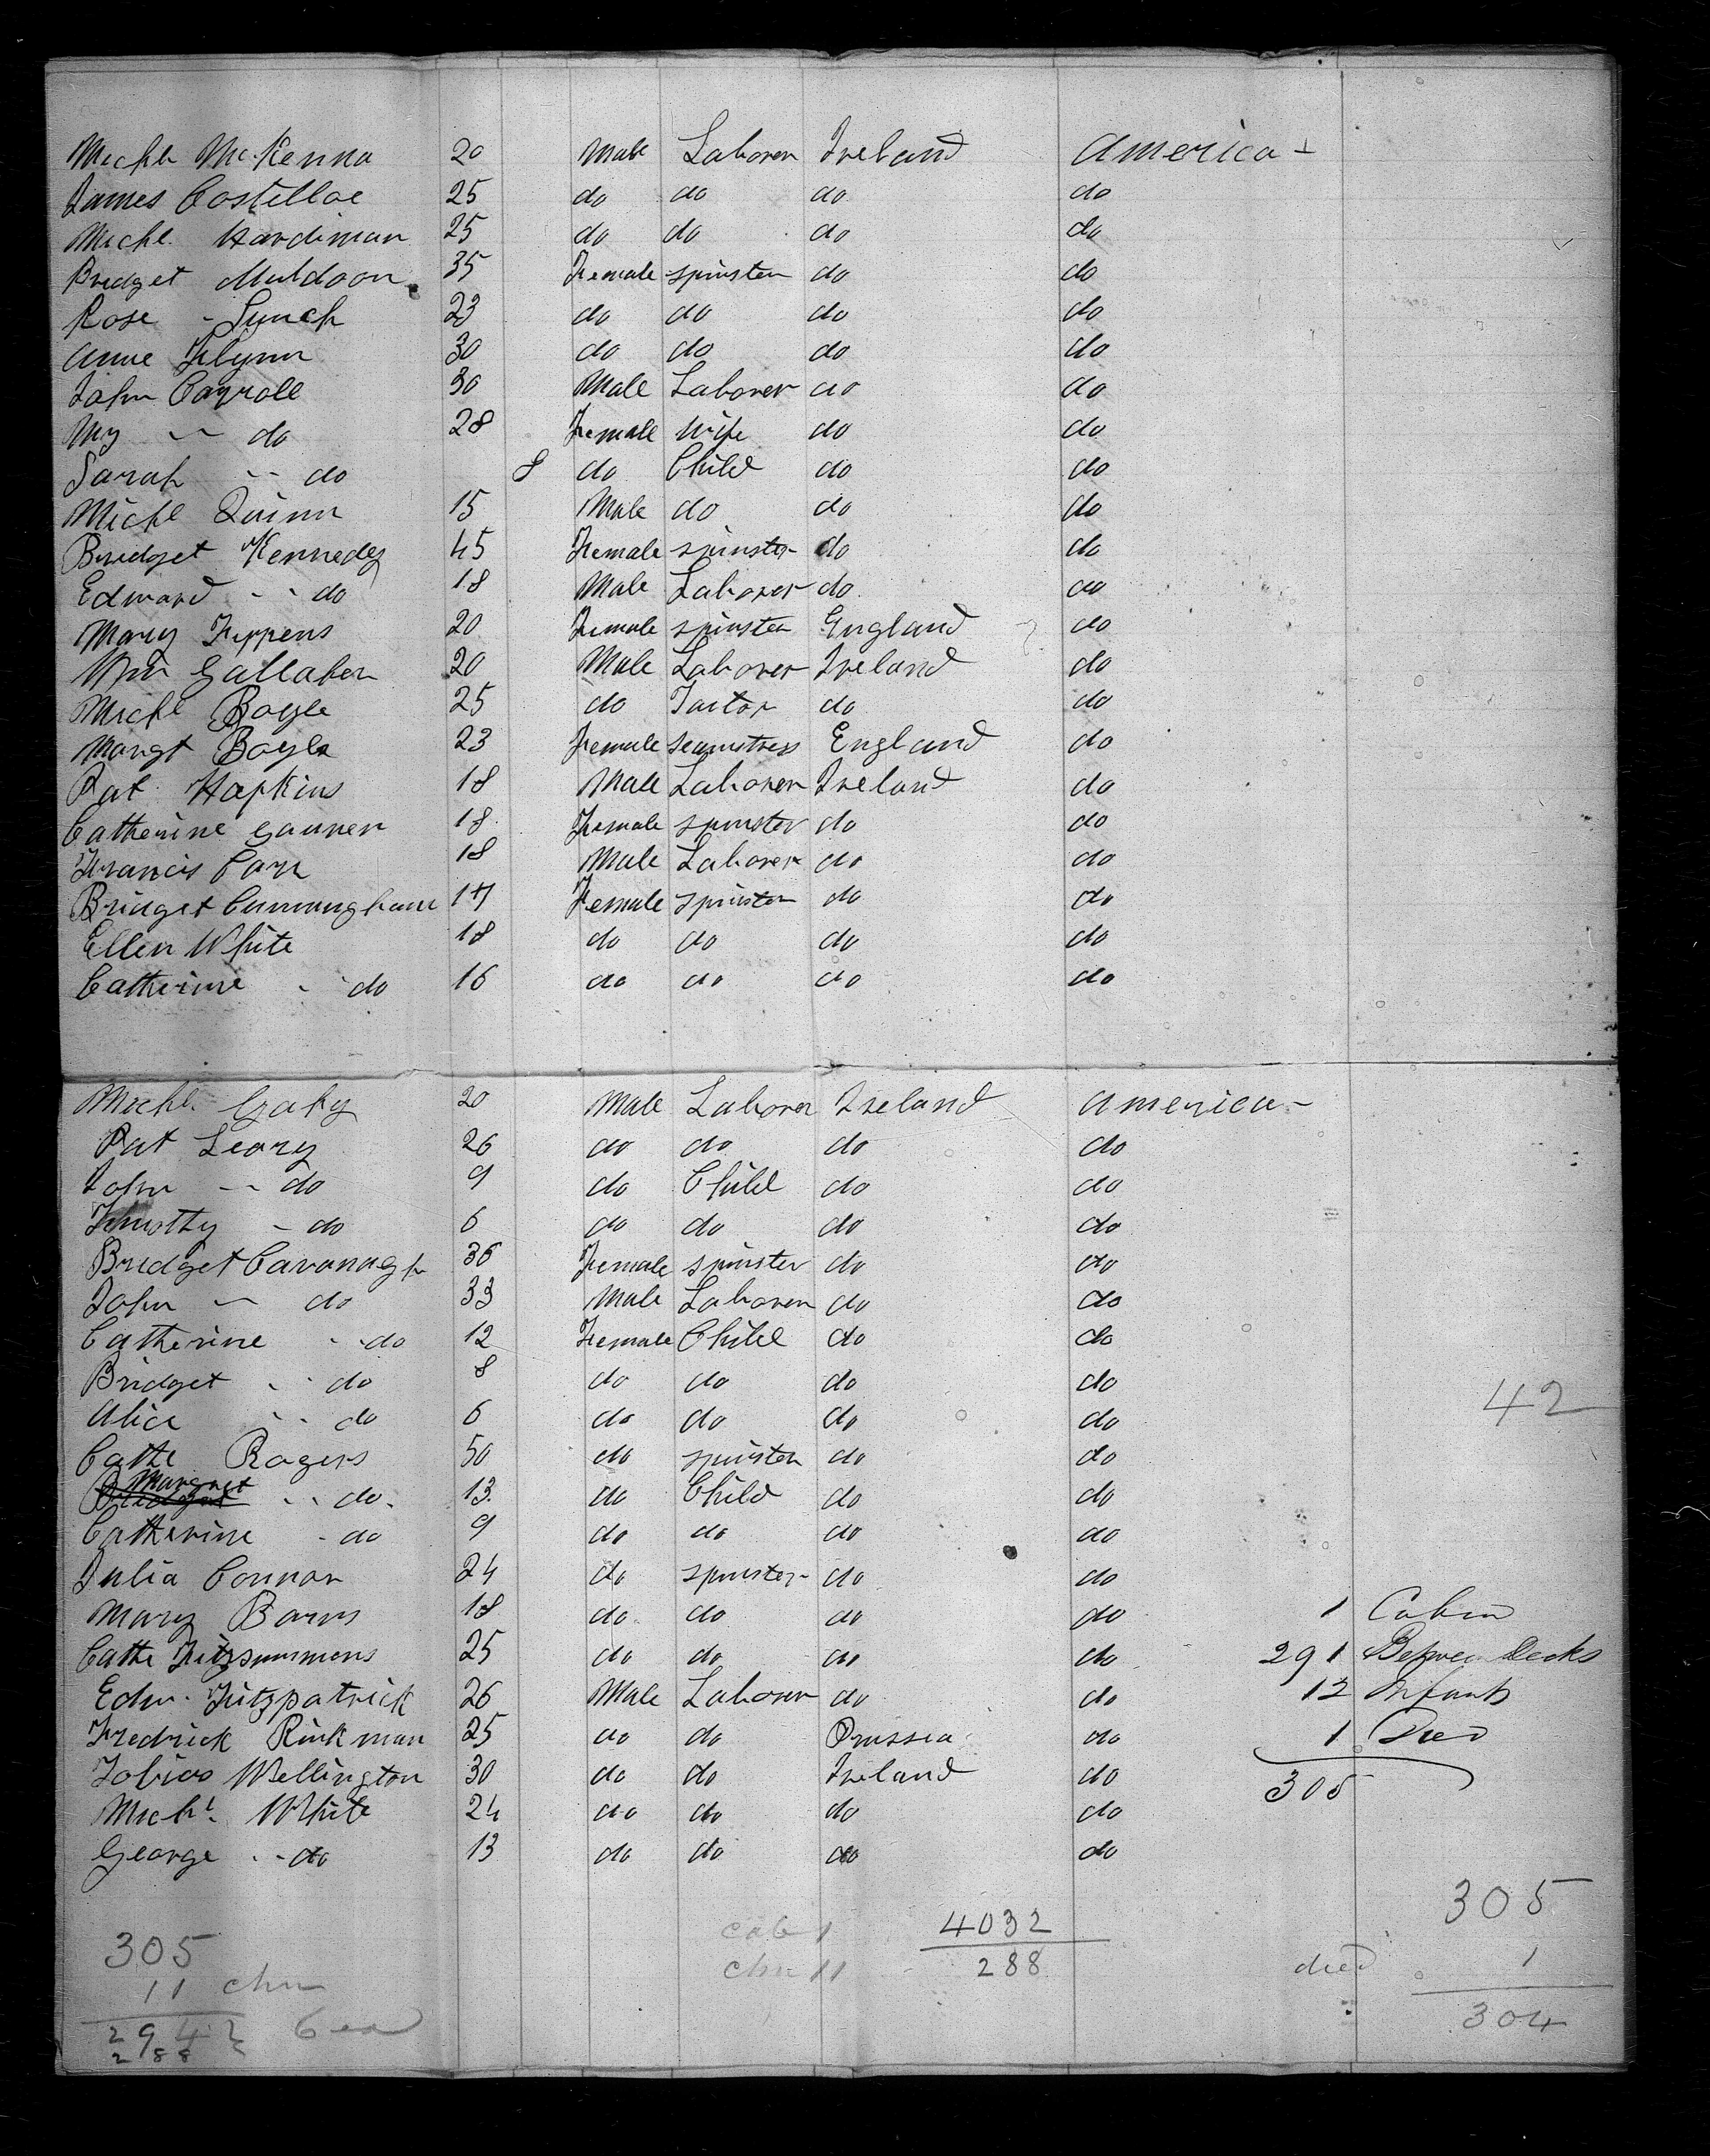 Michl McKenna 20 Male Laborer Ireland America
James Costelloe 25 do do do do
Michl. Hardiman 25 do do do do
Bridget Muldoon 35 Female spinster do do
Rose Lynch 23 do do do do
Anne Flynn 30 do do do do
John Carroll 30 Male Laborer do do
My do 28 Female Wife do do
Sarah do 8 do Child do do
Michl Quinn 15 Male do do do
Bridget Kennedy 45 Female spinster do do
Edward do 18 Male Laborer do do
Mary 20 Female spinster England do
Wm Gallaher 20 Male Laborer Ireland do
Michl Boyle 25 do do do
Margt Boyle 23 Female seamstress England do
Pat Hopkins 18 Male Laborer Ireland do
Catherine 18 Female spinster do do
Francis Carr 18 Male Laborer do do
Bridget Cunningham 17 Female spinster do do
Ellen White 18 do do do do
Catherine do 16 do do do do
Michl. 20 Male Laborer Ireland America
Pat Leary 26 do do do do
John do 9 do Child do do
Timothy do 6 do do do do
Bridget Cavanagh 36 Female spinster do do
John do 33 Male Laborer do do
Catherine do 12 Female Child do do
Bridget do 8 do do do do
42
Alice do 6 do do do do
Cathe Rogers 50 do spinster do do
Margret do 13 do Child do do
Catherine do 9 do do do do
Julia Connor 24 do spinster do do
Mary Barns 18 do do do do 1 Cabin
Cathe Fitzsimmons 25 do do do do 291 Between Decks
Edw. Fitzpatrick 26 Male Laborer do do 12 Infants
Fredrick Rinkman 25 do do Prussia do 1 Died
Tobias Wellington 30 do do Ireland do 305
Michl. White 24 do do do do
George do 13 do do do do
305
cab 1 4032
305
11 chn
chn 11 288
died 1
294
304
288